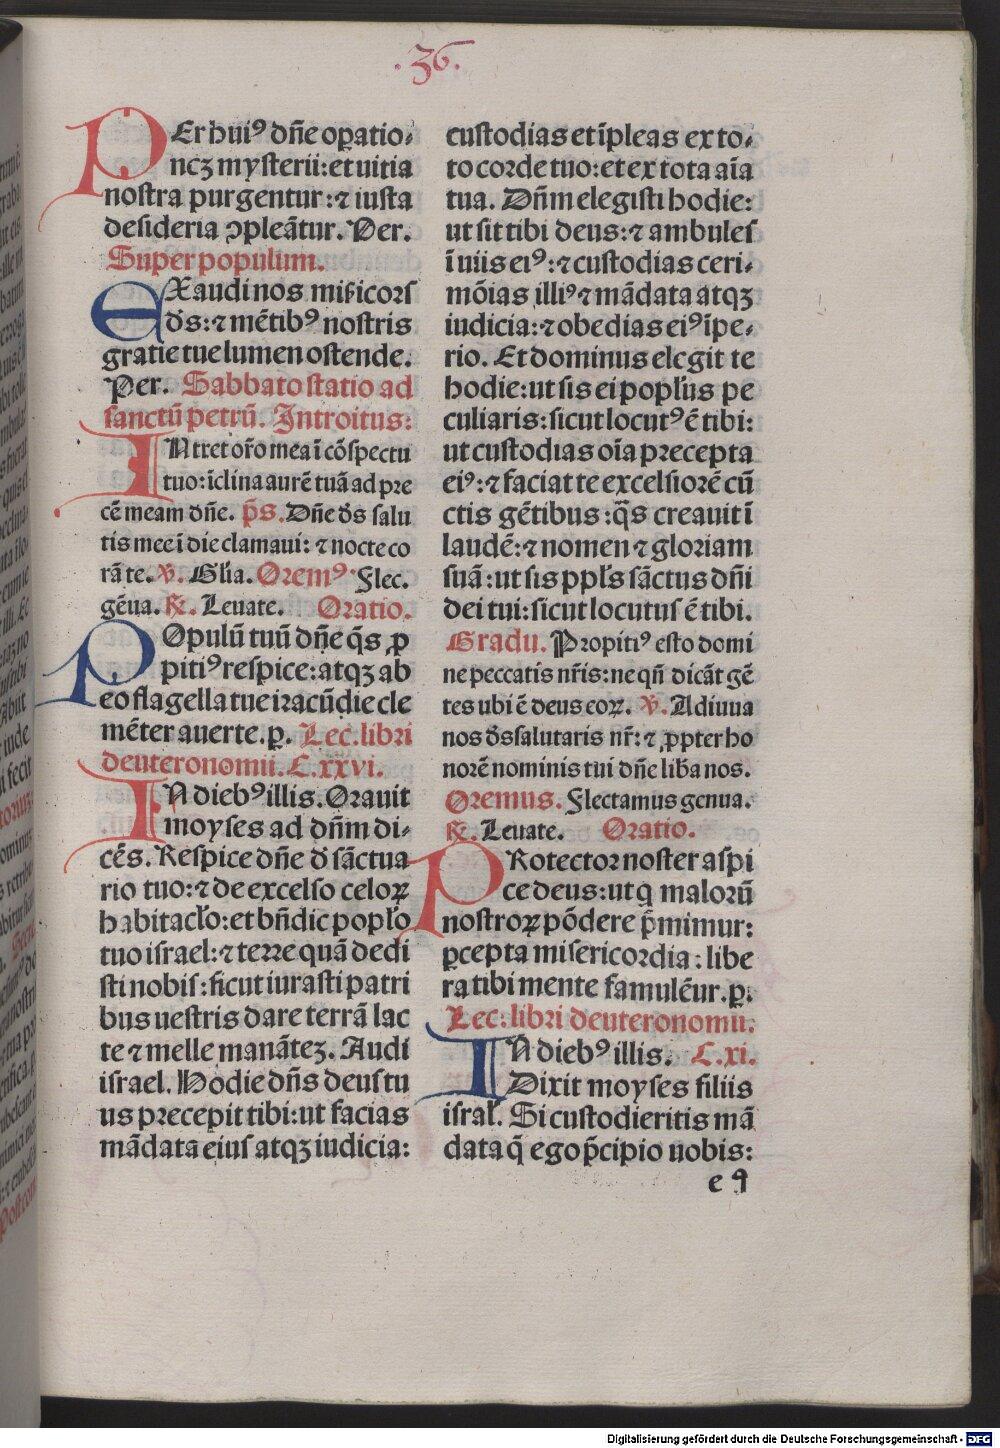 .36.
PEr hui⁹ dñe oꝑatio⸗
neʒ mysterii: et uitia
nostra purgentur: ⁊ iusta
desideria ꝯpleãtur. Per.
Super populum.
EXaudi nos mis̃icors
d̃s: ⁊ mẽtib⁹ nostris
gratie tue lumen ostende.
Per. Sabbato statio ad
sanctũ petrũ. Introitus:
INtret or̃o mea ĩ cõspectu
tuo: ĩclina aurẽ tuã ad pre
cẽ meam dñe. p̃s. Dñe d̃s salu
tis mee ĩ die clamaui: ⁊ nocte co
rã te. ℣. Gl̃ia. Orem⁹. Flec.
gẽua. ℟. Leuate. Oratio.
POpulũ tuũ dñe q̃s ꝓ
piti⁹ respice: atqʒ ab
eo flagella tue iracũdie cle
mẽter auerte. ꝑ. Lec. libri
deuteronomii. C. xxvi.
IN dieb⁹ illis. Orauit
moyses ad dñm di⸗
cẽs. Respice dñe d̃ sãctua
rio tuo: ⁊ de excelso celoꝝ
habitacl̃o: et bñdic popl̃o
tuo israel: ⁊ terre quã dedi
sti nobis: sicut iurasti patri
bus uestris dare terrã lac
te ⁊ melle manãteʒ. Audi
israel. Hodie dñs deus tu
us precepit tibi: ut facias
mãdata eius atqʒ iudicia:
custodias et ĩpleas ex to⸗
to corde tuo: et ex tota aĩa
tua. Dñm elegisti hodie:
ut sit tibi deus: ⁊ ambules
ĩ uiis ei⁹: ⁊ custodias ceri⸗
mõias illi⁹ ⁊ mãdata atqʒ
iudicia: ⁊ obedias ei⁹ ĩpe⸗
rio. Et dominus elegit te
hodie: ut sis ei popl̃us pe
culiaris: sicut locut⁹ ẽ tibi:
ut custodias oĩa precepta
ei⁹: ⁊ faciat te excelsiorẽ cũ
ctis gẽtibus: q̃s creauit ĩ
laudẽ: ⁊ nomen ⁊ gloriam
suã: ut sis ppl̃s sãctus dñi
dei tui: sicut locutus ẽ tibi.
Gradu. Propiti⁹ esto domi
ne peccatis nr̃is: ne qñ dicãt gẽ
tes ubi ẽ deus eoꝝ. ℣. Adiuua
nos d̃s salutaris nr̃: ⁊ ꝓpter ho
norẽ nominis tui dñe libã nos.
Oremus. Flectamus genua.
℟. Leuate. Oratio.
PRotector noster aspi
ce deus: ut q malorũ
nostroꝝ põdere p̃mimur:
ꝑcepta misericordia: libe
ra tibi mente famulẽur. ꝑ.
Lec: libri deuteronomii.
IN dieb⁹ illis. C. xi.
Dixit moyses filiis
isral̃. Si custodieritis mã
data q̃ ego p̃cipio uobis:
e ꝯ
Digitalisierung gefördert durch die Deutsche Forschungsgemeinschaft - DFG